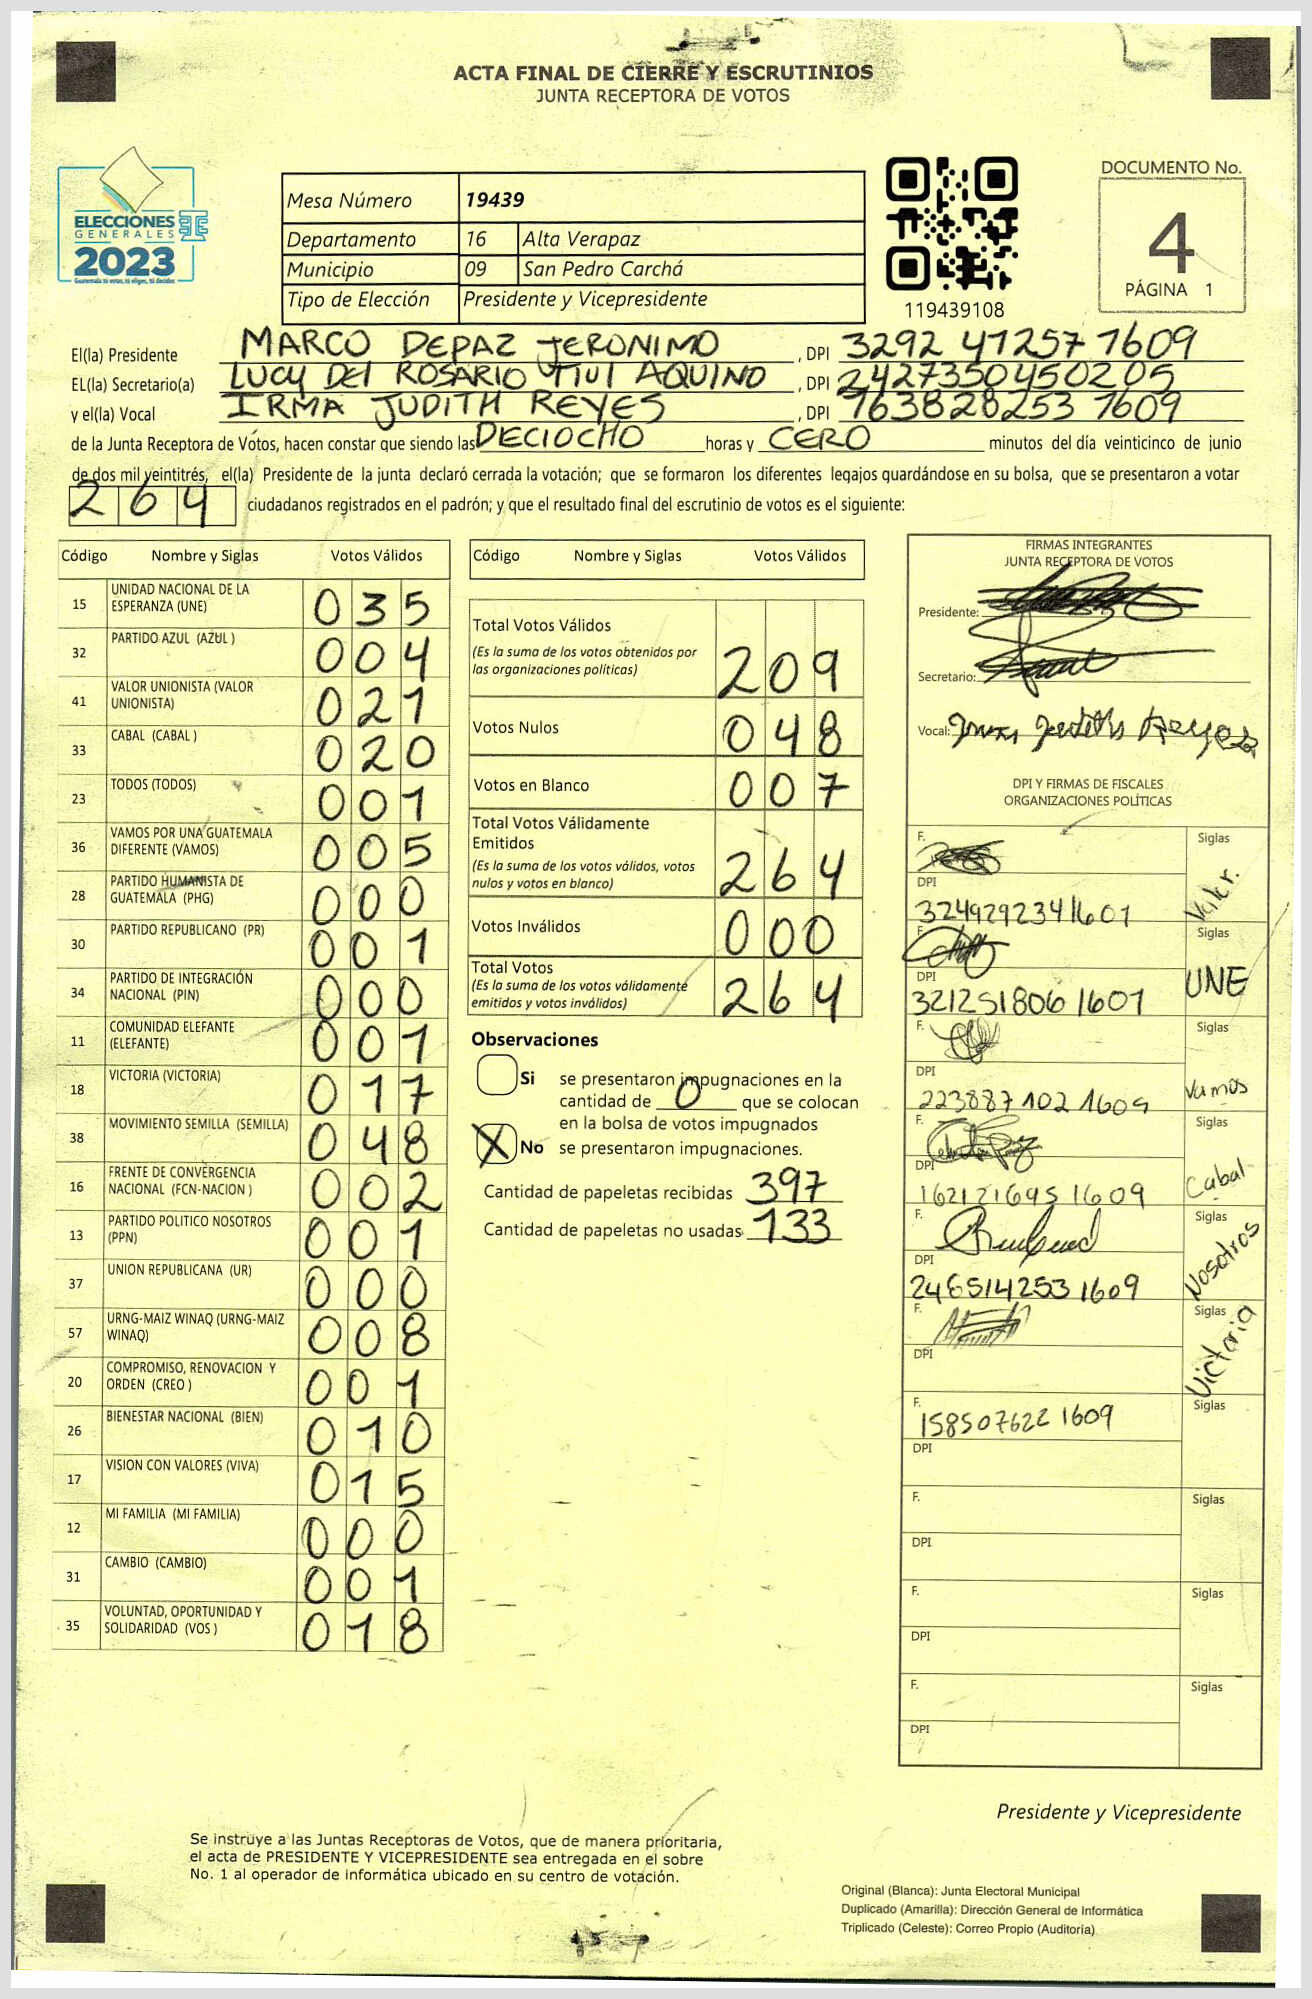 ACTA FINAL DE CIERRE Y ESCRUTINIOS
JUNTA RECEPTORA DE VOTOS
ELECCIONES
GENERALES
2023
Guatemala tú votas, tú eliges, tú decides
Mesa Número 19439
Departamento 16 Alta Verapaz
Municipio 09 San Pedro Carchá
Tipo de Elección Presidente y Vicepresidente
119439108
DOCUMENTO No.
4
PÁGINA 1
El(la) Presidente MARCO DEPAZ JERONIMO , DPI 3292 41257 1609
EL(la) Secretario(a) LUCY DEl ROSARIO TIUl AQUINO , DPI 2427350450205
y el(la) Vocal IRMA JUDITH REYES , DPI 163828253 1609
de la Junta Receptora de Votos, hacen constar que siendo las DECIOCHO horas y CERO minutos del día veinticinco de junio
de dos mil veintitrés, el(la) Presidente de la junta declaró cerrada la votación; que se formaron los diferentes legajos guardándose en su bolsa, que se presentaron a votar
264 ciudadanos registrados en el padrón; y que el resultado final del escrutinio de votos es el siguiente:
Código Nombre y Siglas Votos Válidos
15 UNIDAD NACIONAL DE LA ESPERANZA (UNE) 035
32 PARTIDO AZUL (AZUL ) 004
41 VALOR UNIONISTA (VALOR UNIONISTA) 021
33 CABAL (CABAL ) 020
23 TODOS (TODOS) 001
36 VAMOS POR UNA GUATEMALA DIFERENTE (VAMOS) 005
28 PARTIDO HUMANISTA DE GUATEMALA (PHG) 000
30 PARTIDO REPUBLICANO (PR) 001
34 PARTIDO DE INTEGRACIÓN NACIONAL (PIN) 000
11 COMUNIDAD ELEFANTE (ELEFANTE) 001
18 VICTORIA (VICTORIA) 017
38 MOVIMIENTO SEMILLA (SEMILLA) 048
16 FRENTE DE CONVERGENCIA NACIONAL (FCN-NACION ) 002
13 PARTIDO POLITICO NOSOTROS (PPN) 001
37 UNION REPUBLICANA (UR) 000
57 URNG-MAIZ WINAQ (URNG-MAIZ WINAQ) 008
20 COMPROMISO, RENOVACION Y ORDEN (CREO ) 001
26 BIENESTAR NACIONAL (BIEN) 010
17 VISION CON VALORES (VIVA) 015
12 MI FAMILIA (MI FAMILIA) 000
31 CAMBIO (CAMBIO) 001
35 VOLUNTAD, OPORTUNIDAD Y SOLIDARIDAD (VOS ) 018
Código Nombre y Siglas Votos Válidos
Total Votos Válidos 209
(Es la suma de los votos obtenidos por
las organizaciones políticas)
Votos Nulos 048
Votos en Blanco 007
Total Votos Válidamente
Emitidos 264
(Es la suma de los votos válidos, votos
nulos y votos en blanco)
Votos Inválidos 000
Total Votos 264
(Es la suma de los votos válidamente
emitidos y votos inválidos)
Observaciones
Si se presentaron impugnaciones en la
cantidad de 0 que se colocan
en la bolsa de votos impugnados
X No se presentaron impugnaciones.
Cantidad de papeletas recibidas 397
Cantidad de papeletas no usadas 133
FIRMAS INTEGRANTES
JUNTA RECEPTORA DE VOTOS
Presidente:
Secretario:
Vocal: Irma Judith Reyes
DPI Y FIRMAS DE FISCALES
ORGANIZACIONES POLÍTICAS
F. Siglas Valor.
DPI 3249292341601
F. Siglas UNE
DPI 3212518061601
F. Siglas Vamos
DPI 223887102 1609
F. Siglas Cabal
DPI 162121645 1609
F. Siglas Nosotros
DPI 246514253 1609
F. Siglas Victoria
DPI
F. 158507622 1609 Siglas
DPI
F. Siglas
DPI
F. Siglas
DPI
F. Siglas
DPI
Presidente y Vicepresidente
Se instruye a las Juntas Receptoras de Votos, que de manera prioritaria,
el acta de PRESIDENTE Y VICEPRESIDENTE sea entregada en el sobre
No. 1 al operador de informática ubicado en su centro de votación.
Original (Blanca): Junta Electoral Municipal
Duplicado (Amarilla): Dirección General de Informática
Triplicado (Celeste): Correo Propio (Auditoría)